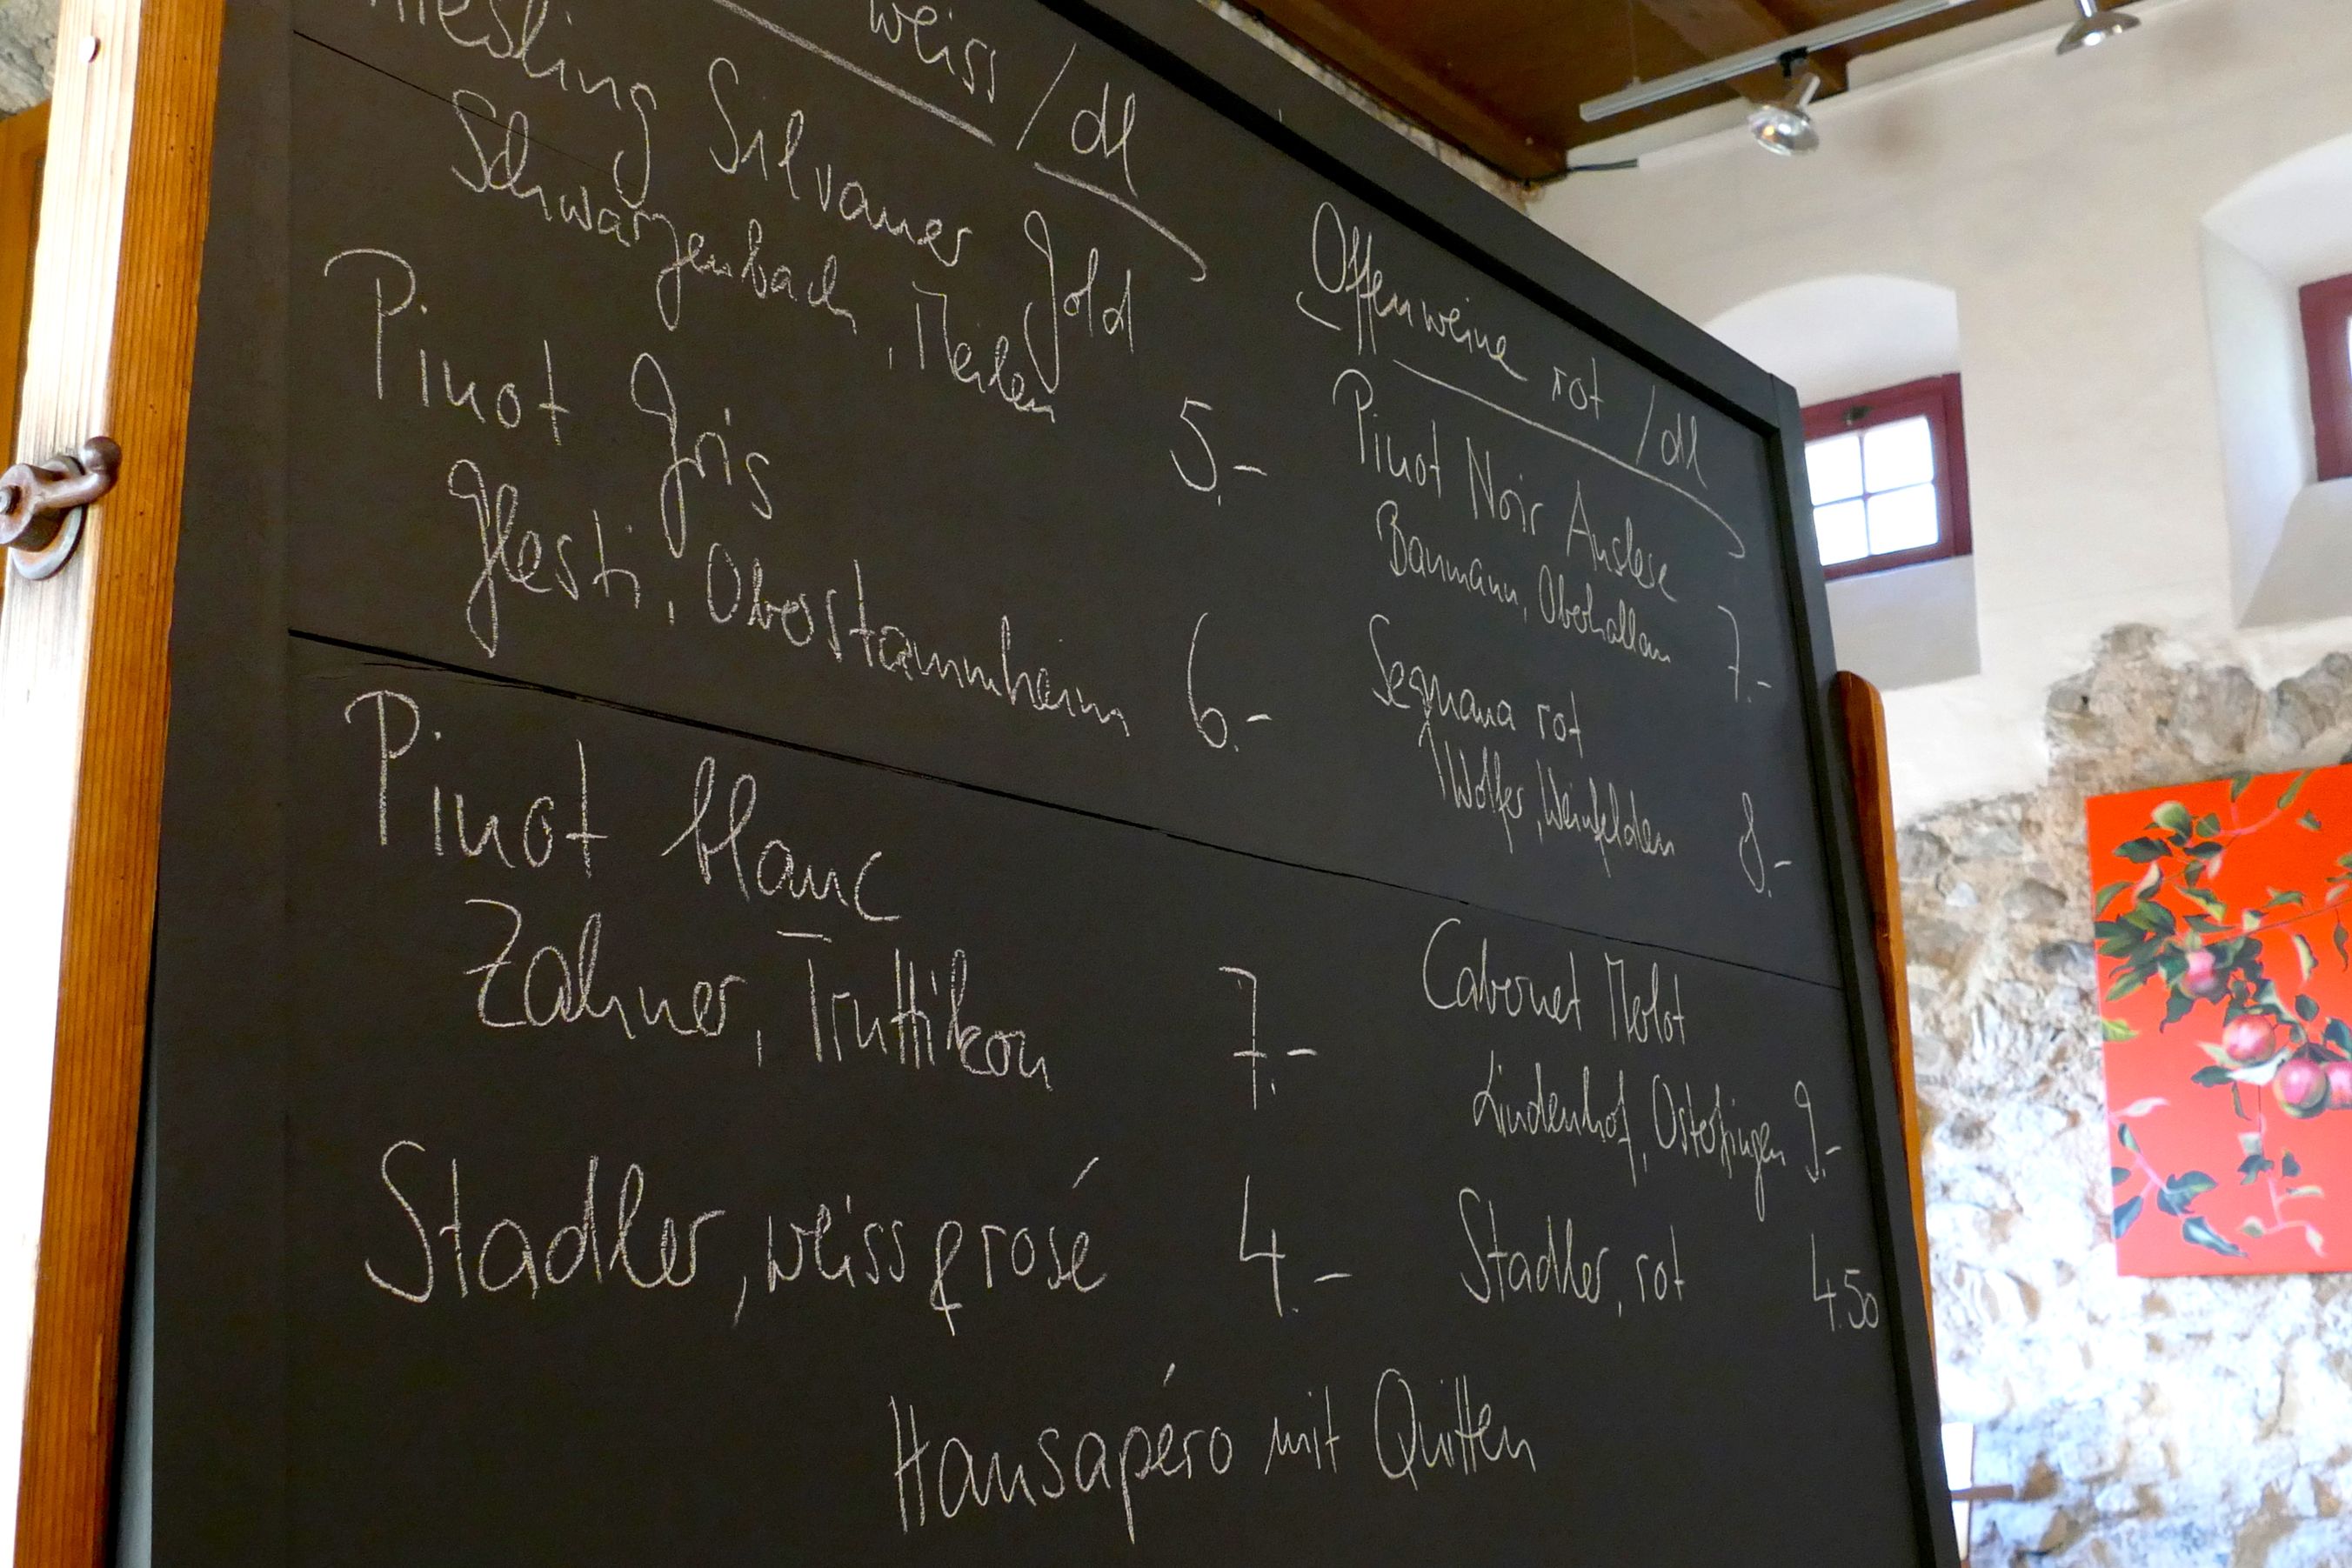 weiss / dl
Riesling Silvaner Gold
Schwarzenbach, Meilen 5.-
Pinot Gris
Glesti, Oberstammheim 6.-
Pinot blanc
Zahner, Truttikon 7.-
Stadler, weiss & rosé 4.-
Offenweine rot / dl
Pinot Noir Auslese
Baumann, Oberhallau 7.-
Sequana rot
Wolfer, Weinfelden 8.-
Cabernet Merlot
Lindenhof, Osterfingen 9.-
Stadler, rot 4.50
Hausapéro mit Quitten